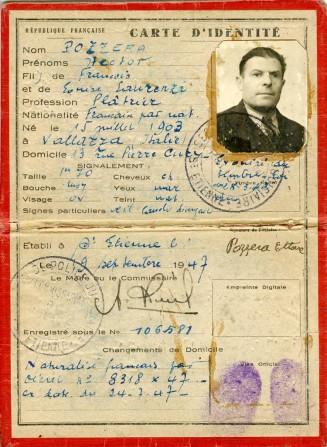 RÉPUBLIQUE FRANÇAISE
CARTE D'IDENTITÉ
Nom POZZERA
Prénoms Hector
Fil de François
et de Louise Laurenzi
Profession Plâtrier
Nationalité Français par nat.
Né le 15 juillet 1903
à Vallarza Italie
Domicile 13 rue Pierre
SIGNALEMENT:
Taille 1m 70 Cheveux ch
Bouche moy Yeux mar
Visage ov Teint mat
Signes particuliers
Pozzera Ettore
Établi à St Etienne
Le 9 septembre 1947
Le Maire ou le Commissaire
Empreinte Digitale
Enregistré sous le No 106581
Changements de Domicile
Visa Officiel
Naturalisé français par
décret no 8318 x 47
en date du 24.7.47